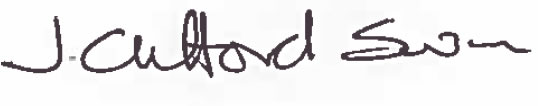 J. Clifford Swan